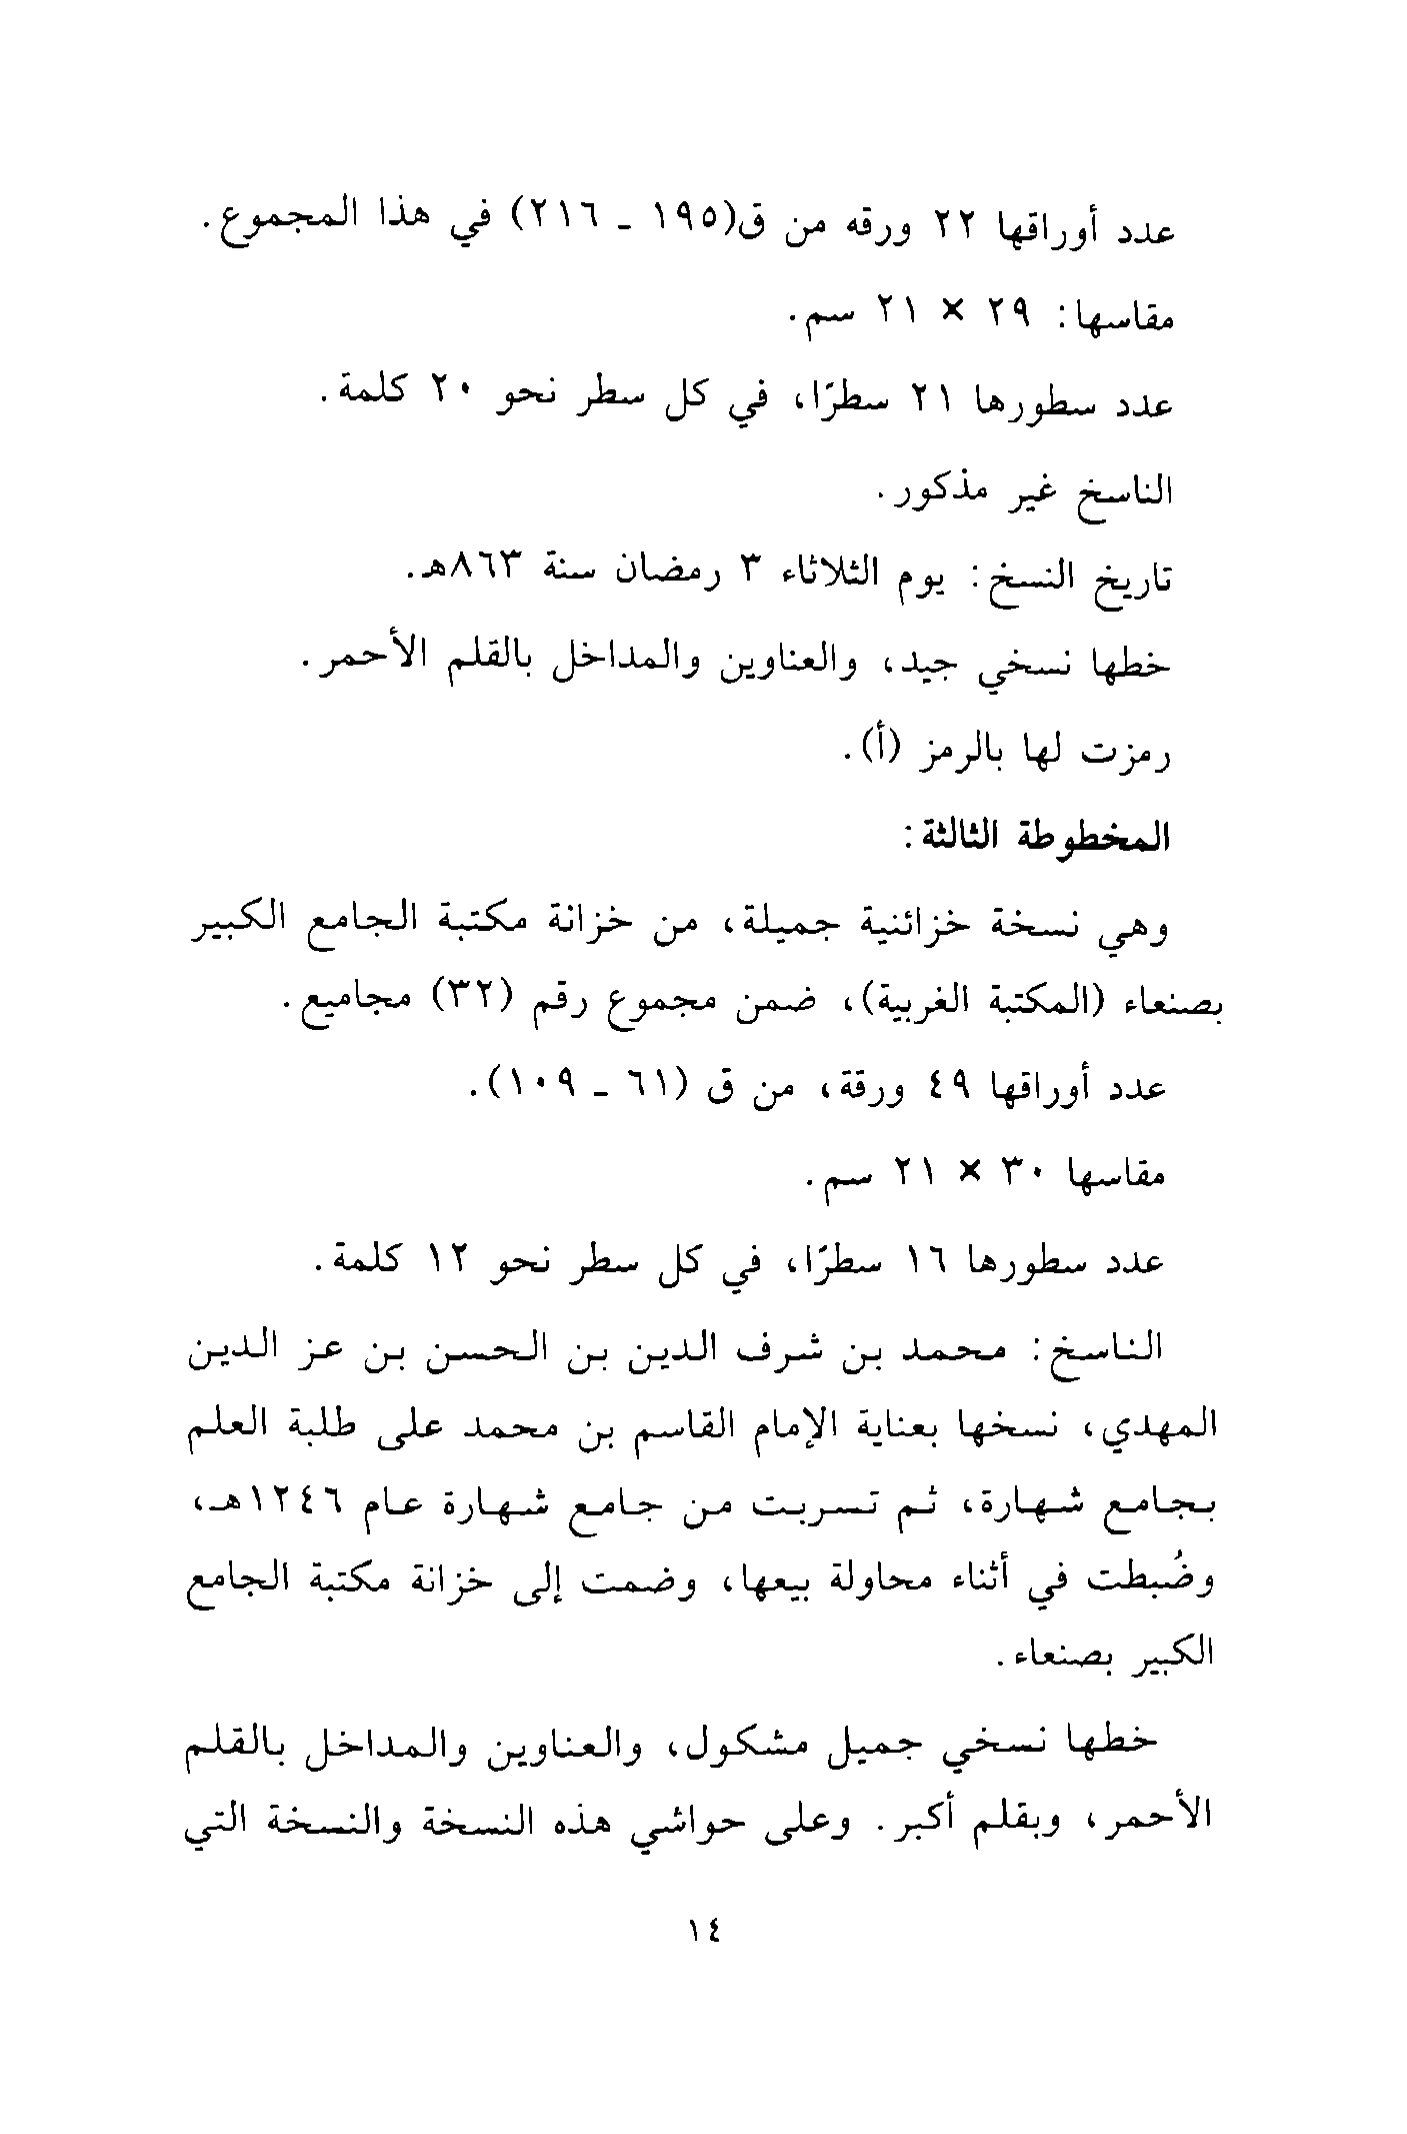 عدد أوراقها ٢٢ ورقه من ق(١٩٥ ـ ٢١٦) في هذا المجموع.
مقاسها: ٢٩ × ٢١ سم.
عدد سطورها ٢١ سطرًا، في كل سطر نحو ٢٠ كلمة.
الناسخ غير مذكور.
تاريخ النسخ: يوم الثلاثاء ٣ رمضان سنة ٨٦٣هـ.
خطها نسخي جيد، والعناوين والمداخل بالقلم الأحمر.
رمزت لها بالرمز (أ).
المخطوطة الثالثة:
وهي نسخة خزائنية جميلة، من خزانة مكتبة الجامع الكبير
بصنعاء (المكتبة الغربية)، ضمن مجموع رقم (٣٢) مجاميع.
عدد أوراقها ٤٩ ورقة، من ق (٦١ ـ ١٠٩).
مقاسها ٣٠ × ٢١ سم.
عدد سطورها ١٦ سطرًا، في كل سطر نحو ١٢ كلمة.
الناسخ: محمد بن شرف الدين بن الحسن بن عز الدين
المهدي، نسخها بعناية الإمام القاسم بن محمد على طلبة العلم
بجامع شهارة، ثم تسربت من جامع شهارة عام ١٢٤٦هـ،
وضُبطت في أثناء محاولة بيعها، وضمت إلى خزانة مكتبة الجامع
الكبير بصنعاء.
خطها نسخي جميل مشكول، والعناوين والمداخل بالقلم
الأحمر، وبقلم أكبر. وعلى حواشي هذه النسخة والنسخة التي
١٤